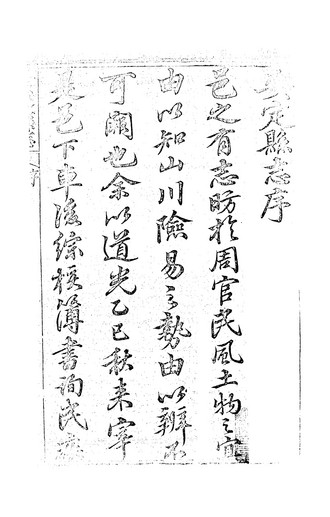 定縣志序
邑之有志昉於周官民風土物之宜
由以知山川險易之勢由以辨不
可闕也余以道光乙巳秋来宰
是邑下車後綜核簿書詢民